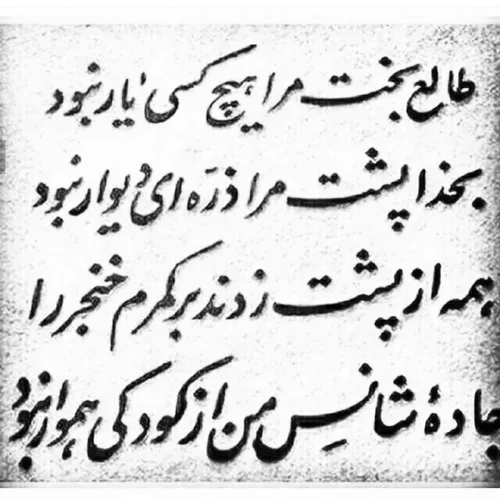 طالع بخت مرا هیچ کسی یار نبود
بخدا پشت مرا ذره ای دیوار نبود
همه از پشت زدند بر کمرم خنجر را
جادهٔ شانس من از کودکی هموار نبود